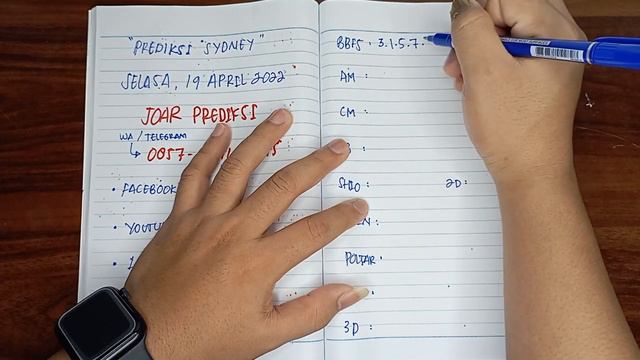 "PREDIKSI SYDNEY"
SELASA, 19 APRIL 2022
JOAR PREDIKSI
WA / TELEGRAM
• FACEBOOK
BBFS : 3.1.5.7.
AM :
CM :
SHIO : 2D :
POLTAR :
3D :